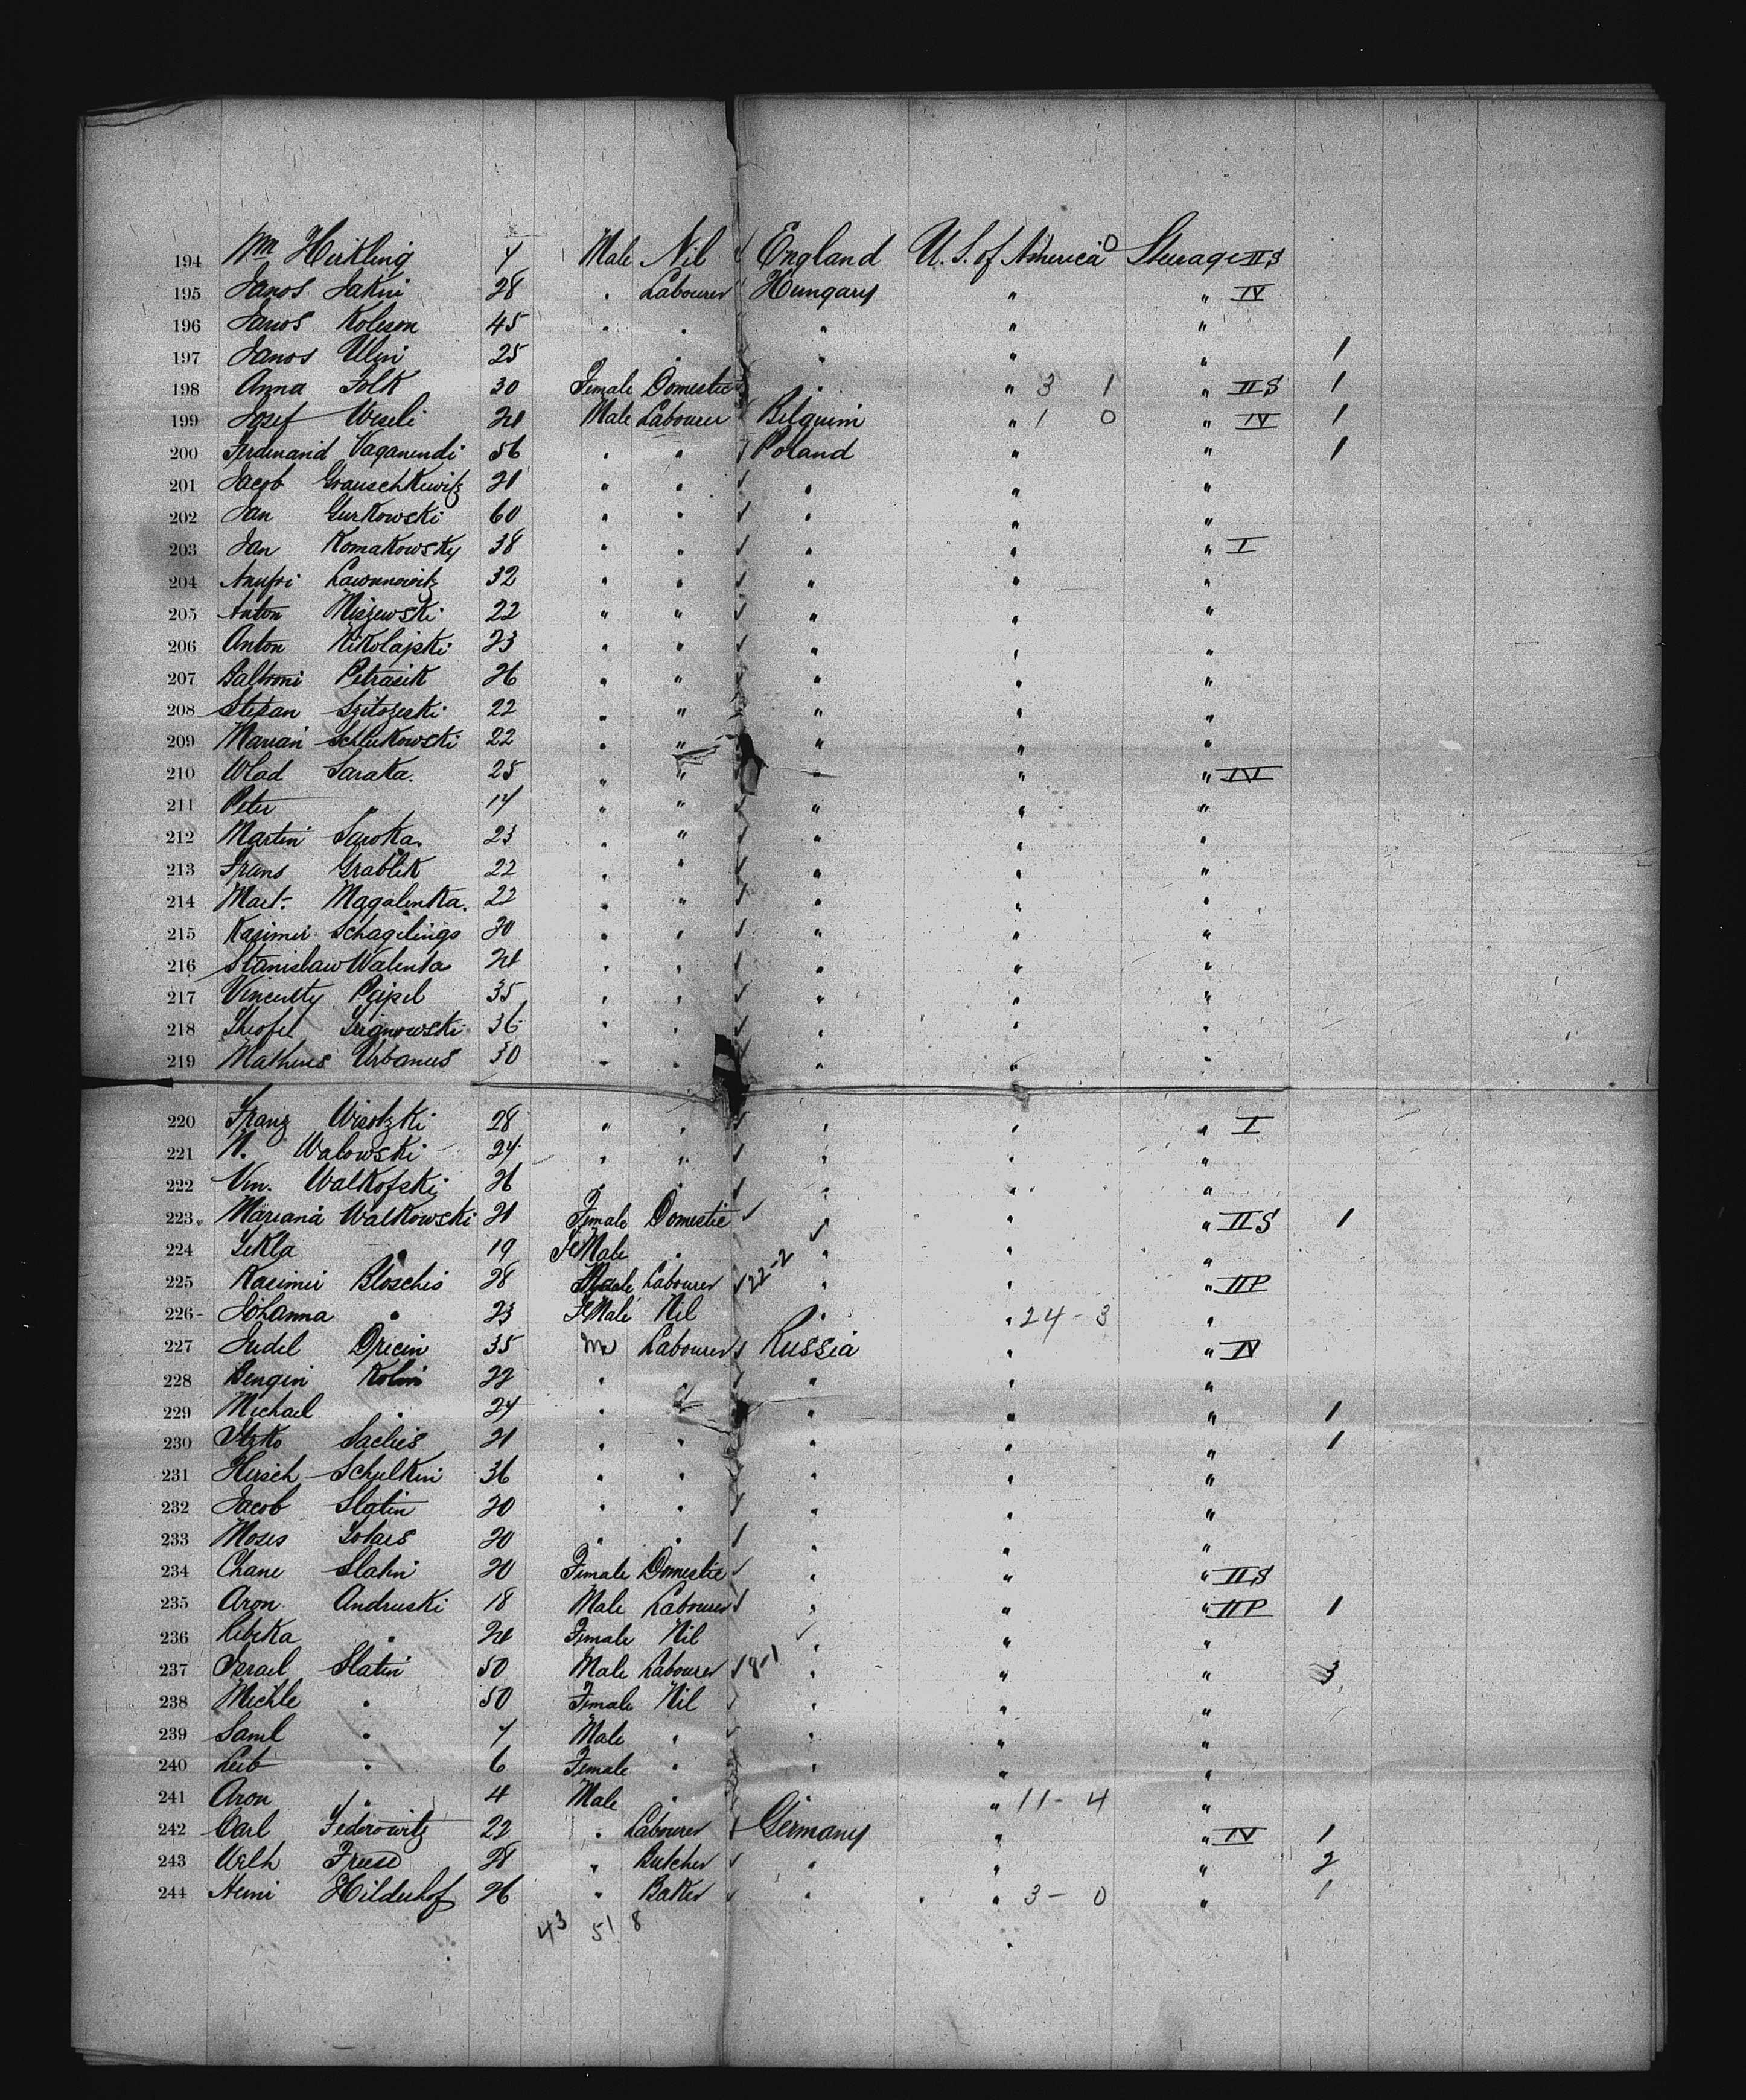 194 Wm Hirkling 7 Male Nil ✓ England U. S. of America 0 Steerage II S
195 Janos Jakni 28 " Labourer Hungary " " IV
196 Janos Koleson 45 " " " " "
197 Janos Ulin 25 " " " " 1
198 Anna Folk 30 Female Domestic " " 3 1 " II S 1
199 Josef Weseli 24 Male Labourer Belguim " 1 0 " IV 1
200 Ferdinand Vaganendi 56 " " ✓ Poland " " 1
201 Jacob Grauschkewitz 21 " " ✓ " " "
202 Jan Gurkowski 60 " " ✓ " " "
203 Jan Komakowsky 38 " " ✓ " " " I
204 Anufri 32 " " ✓ " " "
205 Anton Miszewski 22 " " ✓ " " "
206 Anton Nikolajski 23 " " ✓ " " "
207 Petrasik 26 " " " " "
208 Stepan Szitozeski 22 " " " " "
209 Marian Schlukowski 22 " " " " "
210 Wlad Saraka. 25 " " " " " IV
211 Peter " 14 " " ✓ " " "
212 Martin Saroka. 23 " " ✓ " " "
213 Frans Grablik 22 " " ✓ " " "
214 Mart. Magalinka. 22 " " ✓ " " "
215 Kasimir Schagelings 20 " " ✓ " " "
216 Stanislaw Walenta 24 " " ✓ " " "
217 Vincenty Pajpel 35 " " ✓ " " "
218 Theofel 36 " " ✓ " " "
219 Matheus Urbanus 30 " " ✓ " " "
220 Franz Wisotzki 28 " " ✓ " " " I
221 N. Walowski 24 " " ✓ " " "
222 Vin. Walkofski 26 " " ✓ " " "
223 Mariana Walkowski 21 Female Domestic ✓ " " " II S 1
224 Tekla " 19 FeMale " ✓ " " "
225 Kasimir Bloschis 28 Male Labourer ✓ 22-2 " " " II P
226 Johanna " 23 FeMale Nil " " 24 - 3 "
227 Judel Dricin 35 M Labourer ✓ Russia " " IV
228 Bengin Kolin 22 " " ✓ " " "
229 Michael " 24 " " " " " 1
230 Itzko Sachis 21 " " " " " 1
231 Hirsch Schulkin 36 " " " " "
232 Jacob Slatin 20 " " ✓ " " "
233 Moses 20 " " ✓ " " "
234 Chane Slatin 20 Female Domestic ✓ " " " II S
235 Aron Andruski 18 Male Labourer ✓ " " " II P 1
236 Rebeka " 24 Female Nil ✓ " " "
237 Israel Slatin 50 Male Labourer ✓ 8-1 " " " 3
238 Michle " 50 Female Nil ✓ " " "
239 Saml " 7 Male " ✓ " " "
240 Leib " 6 Female " " " "
241 Aron " 4 Male " " " 11 - 4 "
242 Carl Federowitz 22 " Labourer Germany " " IV 1
243 Welh Freese 28 " Butcher ✓ " " " 2
244 Heini Hilderhof 26 " Baker ✓ " " 3 - 0 " 1
43 51 8